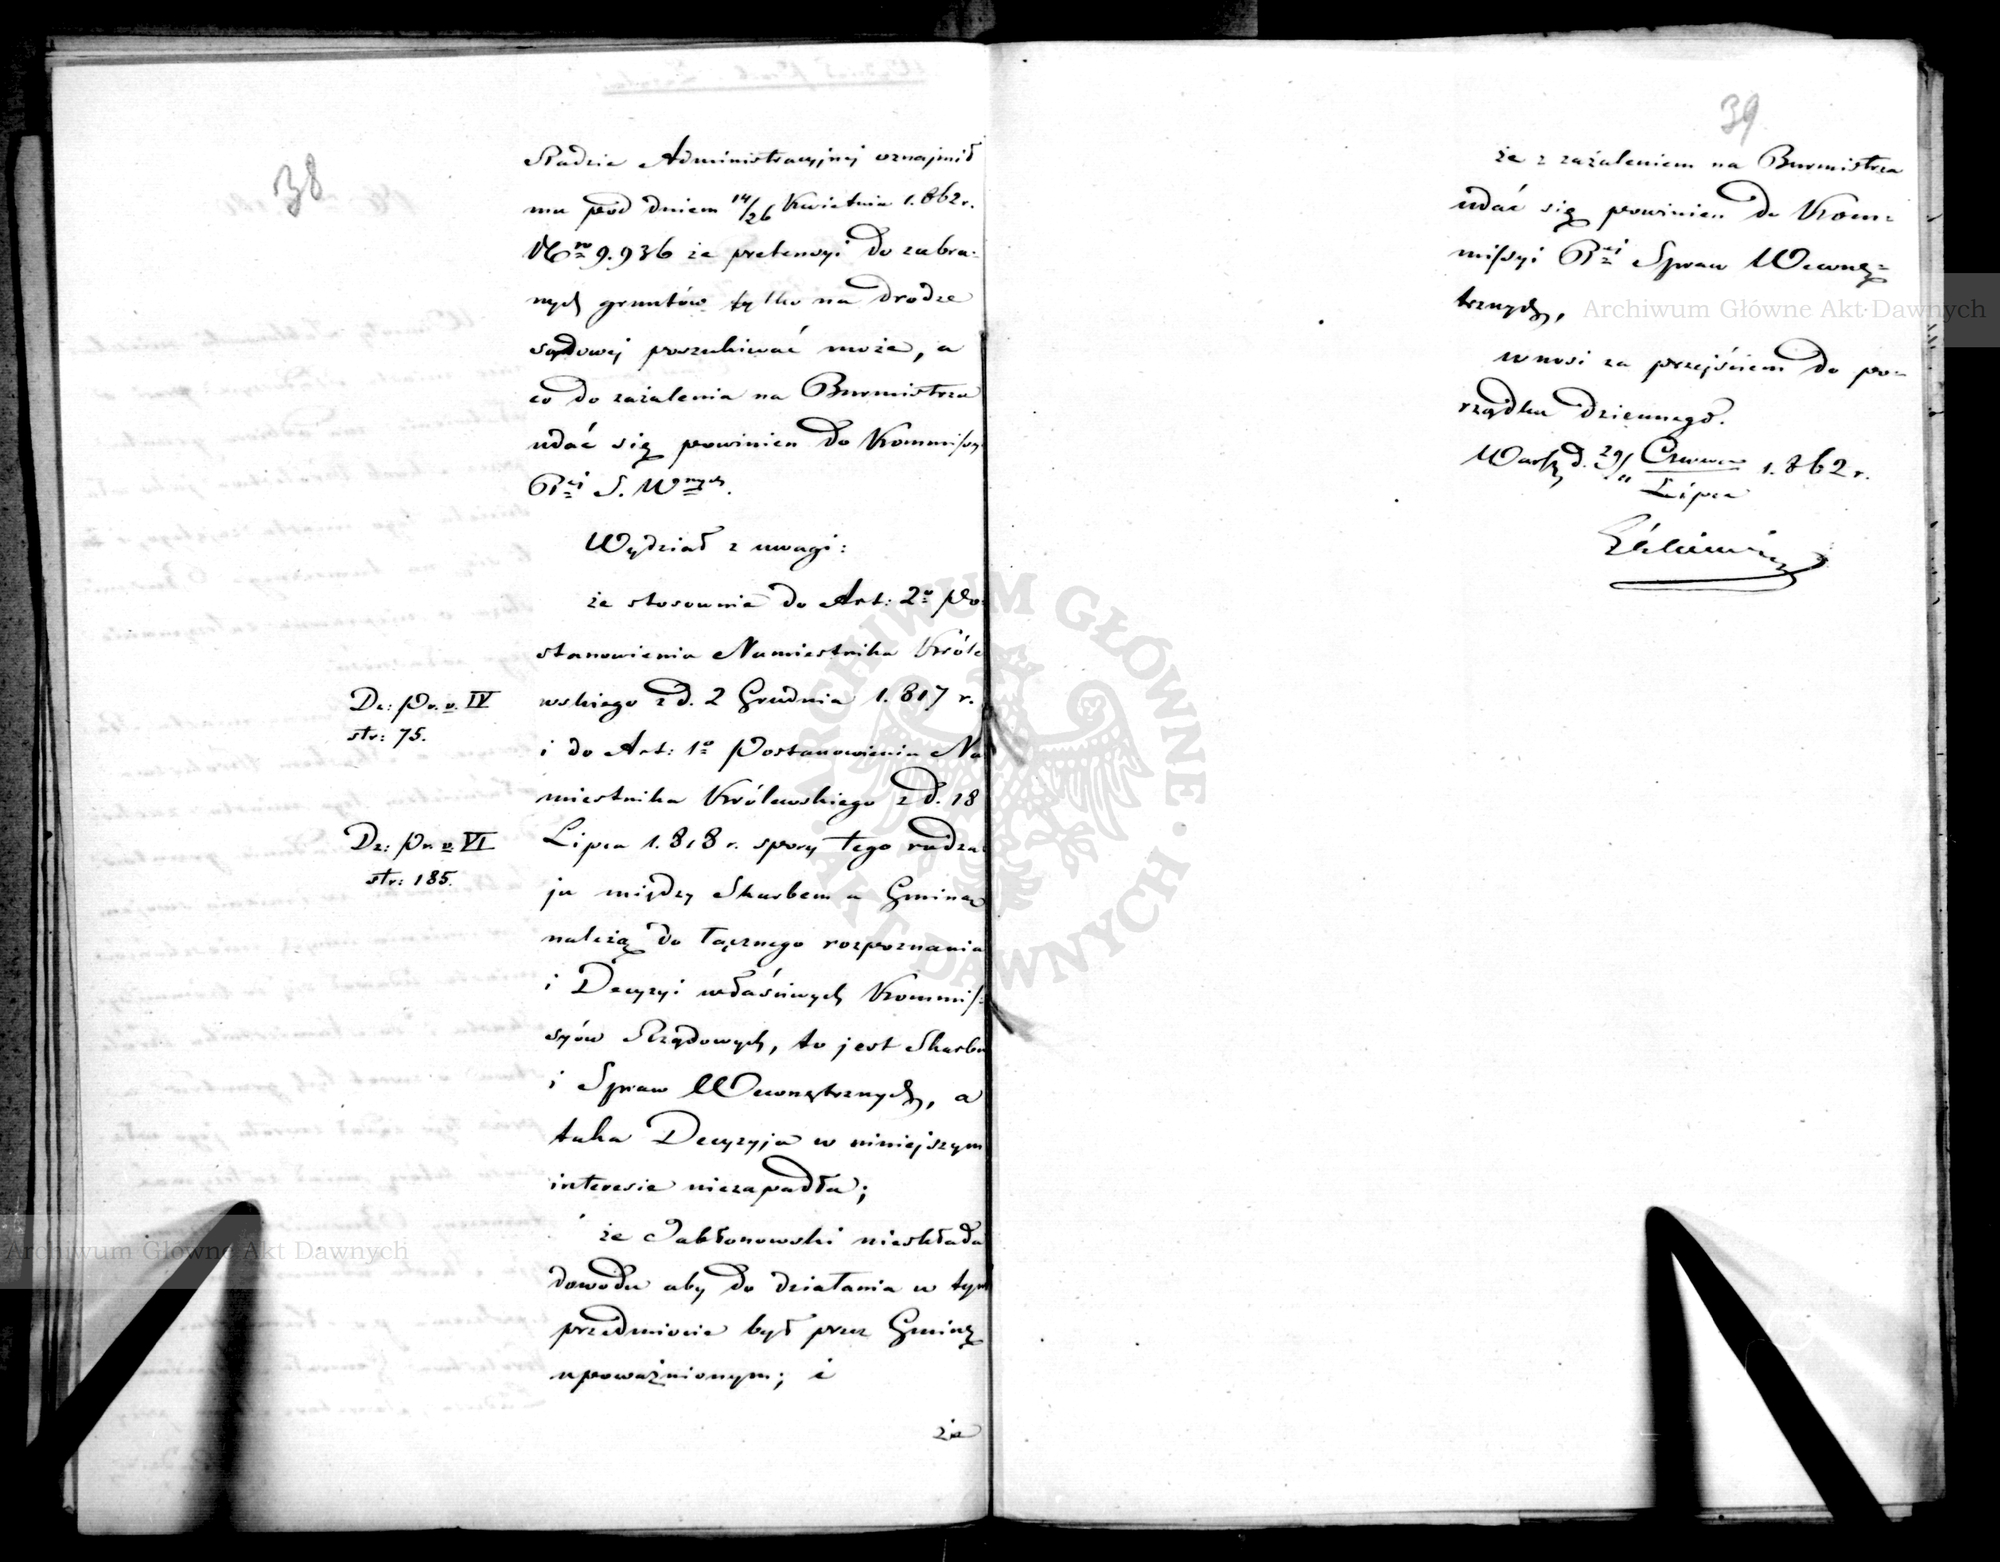 38
Radzie Administracyjnej oznajmił
mu pod dniem 14/26 Kwietnia 1.862 r.
Nro 9.936 że pretensyi do zabra-
nych gruntów tylko na drodze
sądowej poszukiwać może, a
co do zażalenia na Burmistrza
udać się powinien do Kommissyi
Rej S. Wnych.
Wydział z uwagi:
że stosownie do Art: 2o Po-
stanowienia Namiestnika Króle
Dz: Pr. v. IV
str: 75.
wskiego z d. 2 Grudnia 1.817 r.
i do Art: 1o Postanowienia Na
miestnika Królewskiego z d. 18
Dz: Pr. v. VI
str: 185.
Lipca 1.818 r. spory tego rodza
ju między Skarbem a Gminą
należą do łącznego rozpoznania
i Decyzyi właściwych Kommis-
syów Rządowych, to jest Skarbu
i Spraw Wewnętrznych, a
taka Decyzyja w niniejszym
interesie niezapadła;
że Jabłonowski nieskłada
dowodu aby do działania w tym
przedmiocie był przez Gminę
upoważnionym; i
że
39
że z zażaleniem na Burmistrza
udać się powinien do Kom-
missyi Rej Spraw Wewnę-
trznych,
wnosi za przejściem do po-
rządku dziennego.
Warsz d. 29/11 Czerwca/Lipca 1.862 r.
Archiwum Główne Akt Dawnych
Archiwum Główne Akt Dawnych
ARCHIWUM GŁÓWNE AKT DAWNYCH